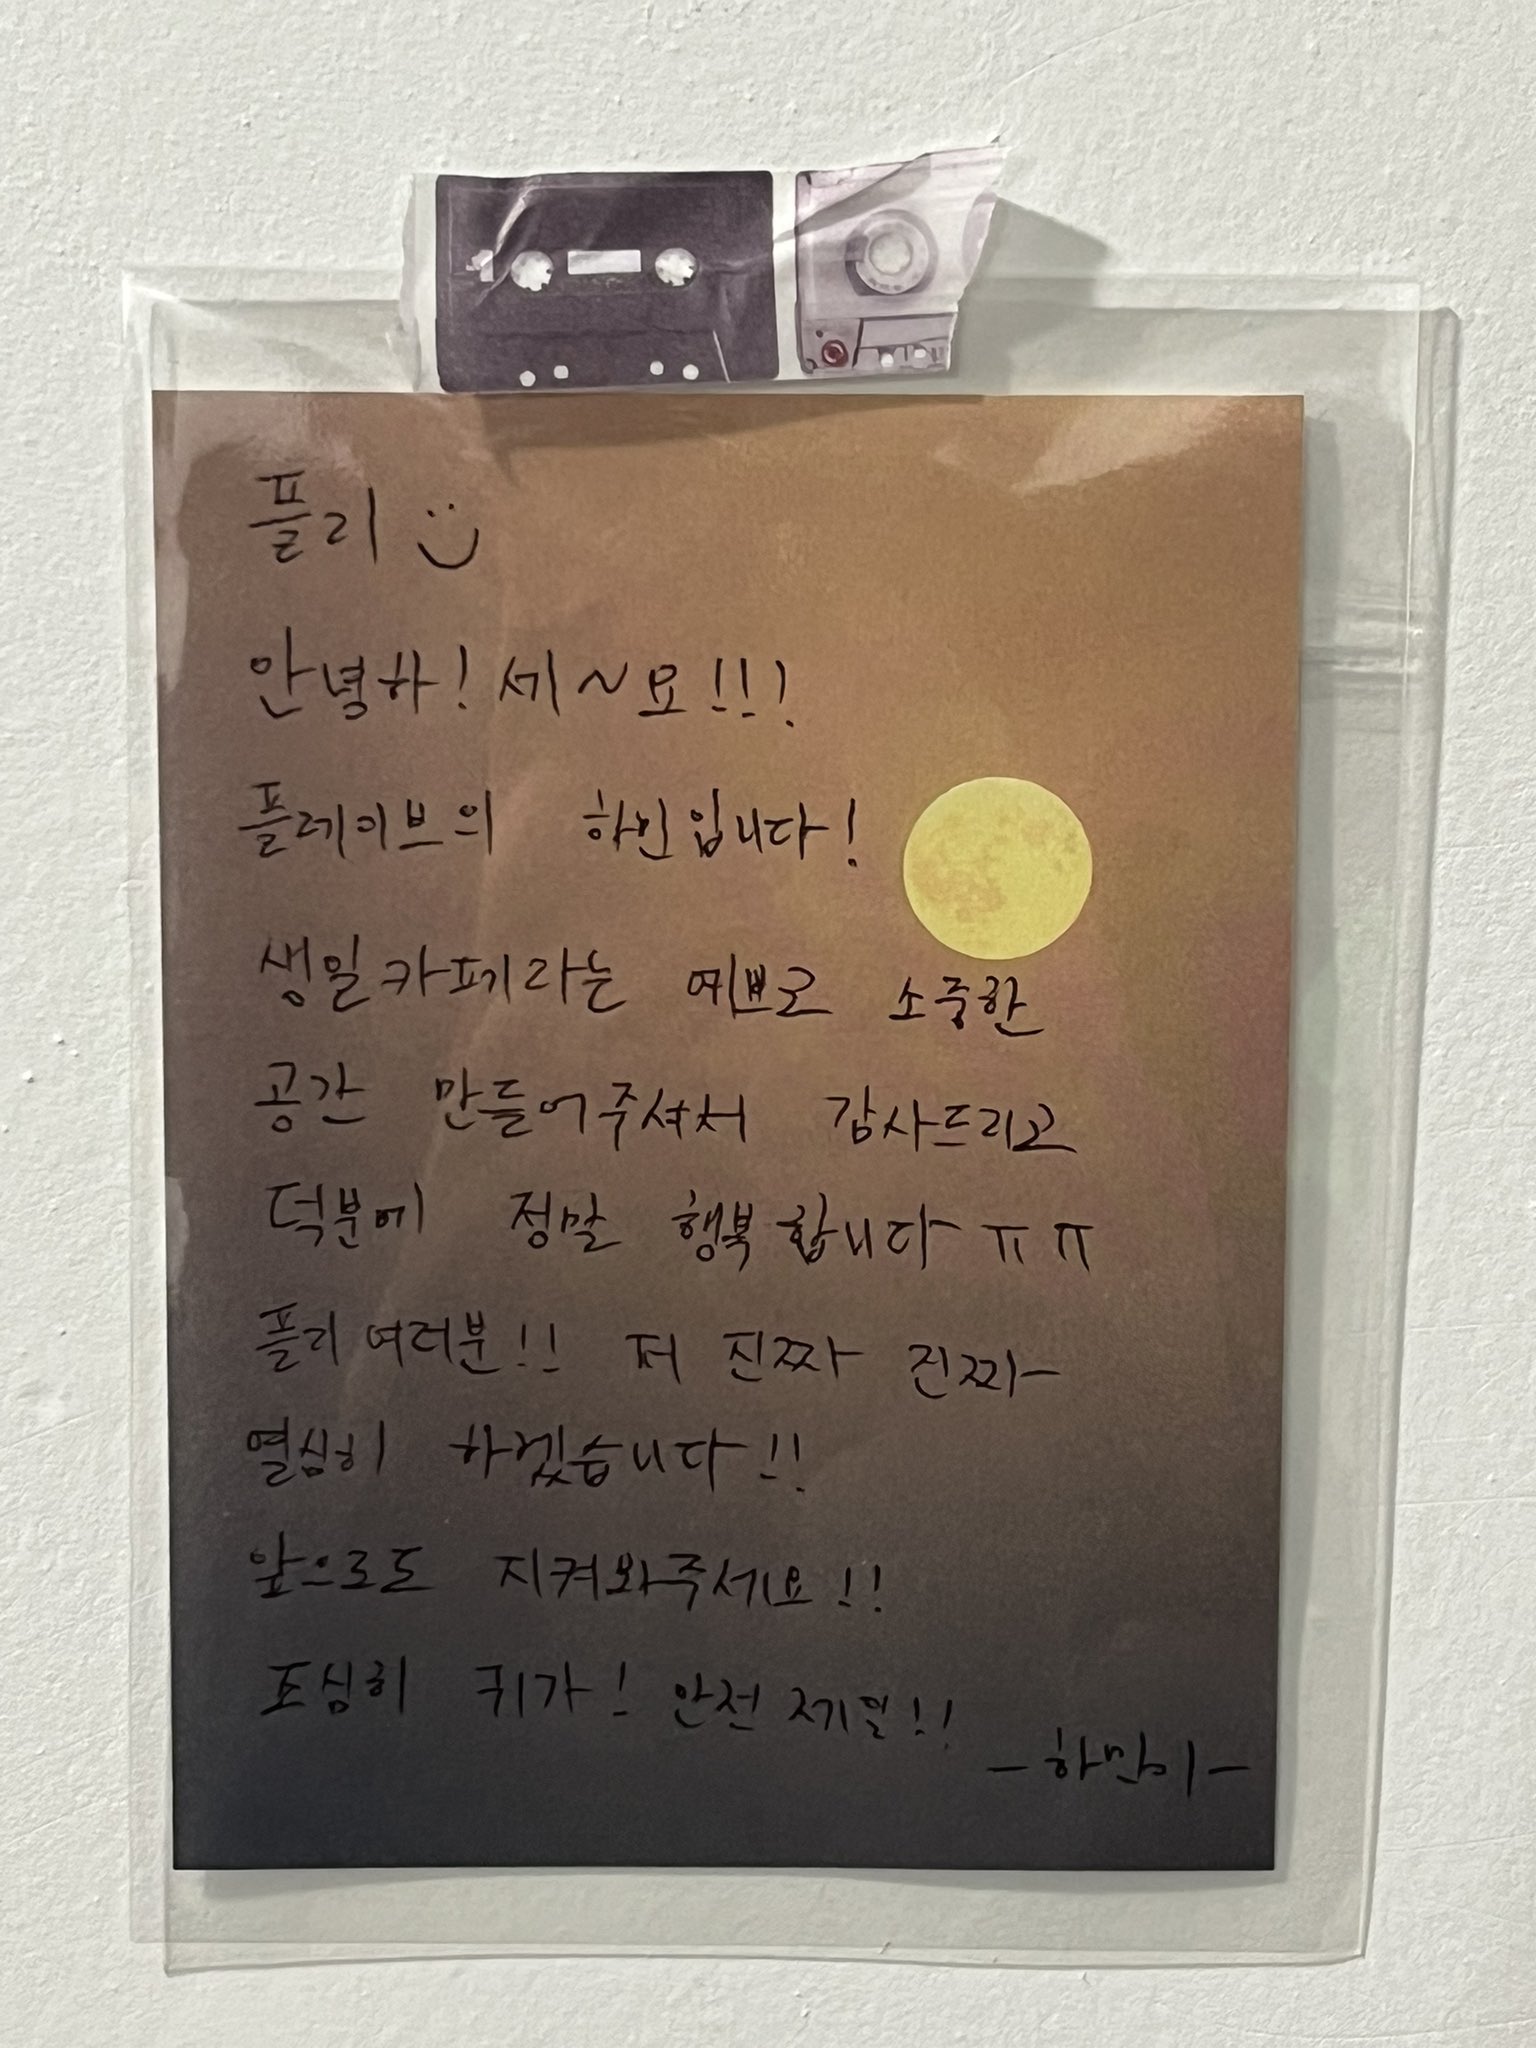 플리
안녕하!세~요!!!
플레이브의 하민입니다!
생일카페라는 예쁘고 소중한
공간 만들어주셔서 감사드리고
덕분에 정말 행복합니다ㅠㅠ
플리여러분!! 저 진짜 진짜
열심히 하겠습니다!!
앞으로도 지켜봐주세요!!
조심히 귀가! 안전제일!!
-하민이-